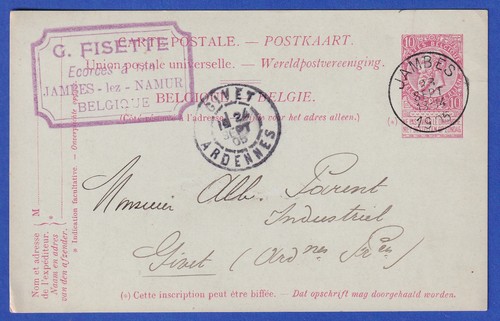 G. FISETTE
Ecorces à
JAMBES-lez-NAMUR
BELGIQUE
CARTE POSTALE. – POSTKAART.
Union postale universelle. – Wereldpostvereeniging.
BELGIQUE BELGIE.
(C'est à l'adresse voor het adres alleen.)
10 10
JAMBES
24
SEPT
1905
GIVET
24
05
ARDENNES
Monsieur Alb. Parent
Industriel
Givet (Ardnes Frce)
M
* Indication facultative
Nom et adresse
de l'expéditeur.
Naam en adres
van den afzender.
(*) Cette inscription peut être biffée. – Dat opschrift mag doorgehaald worden.